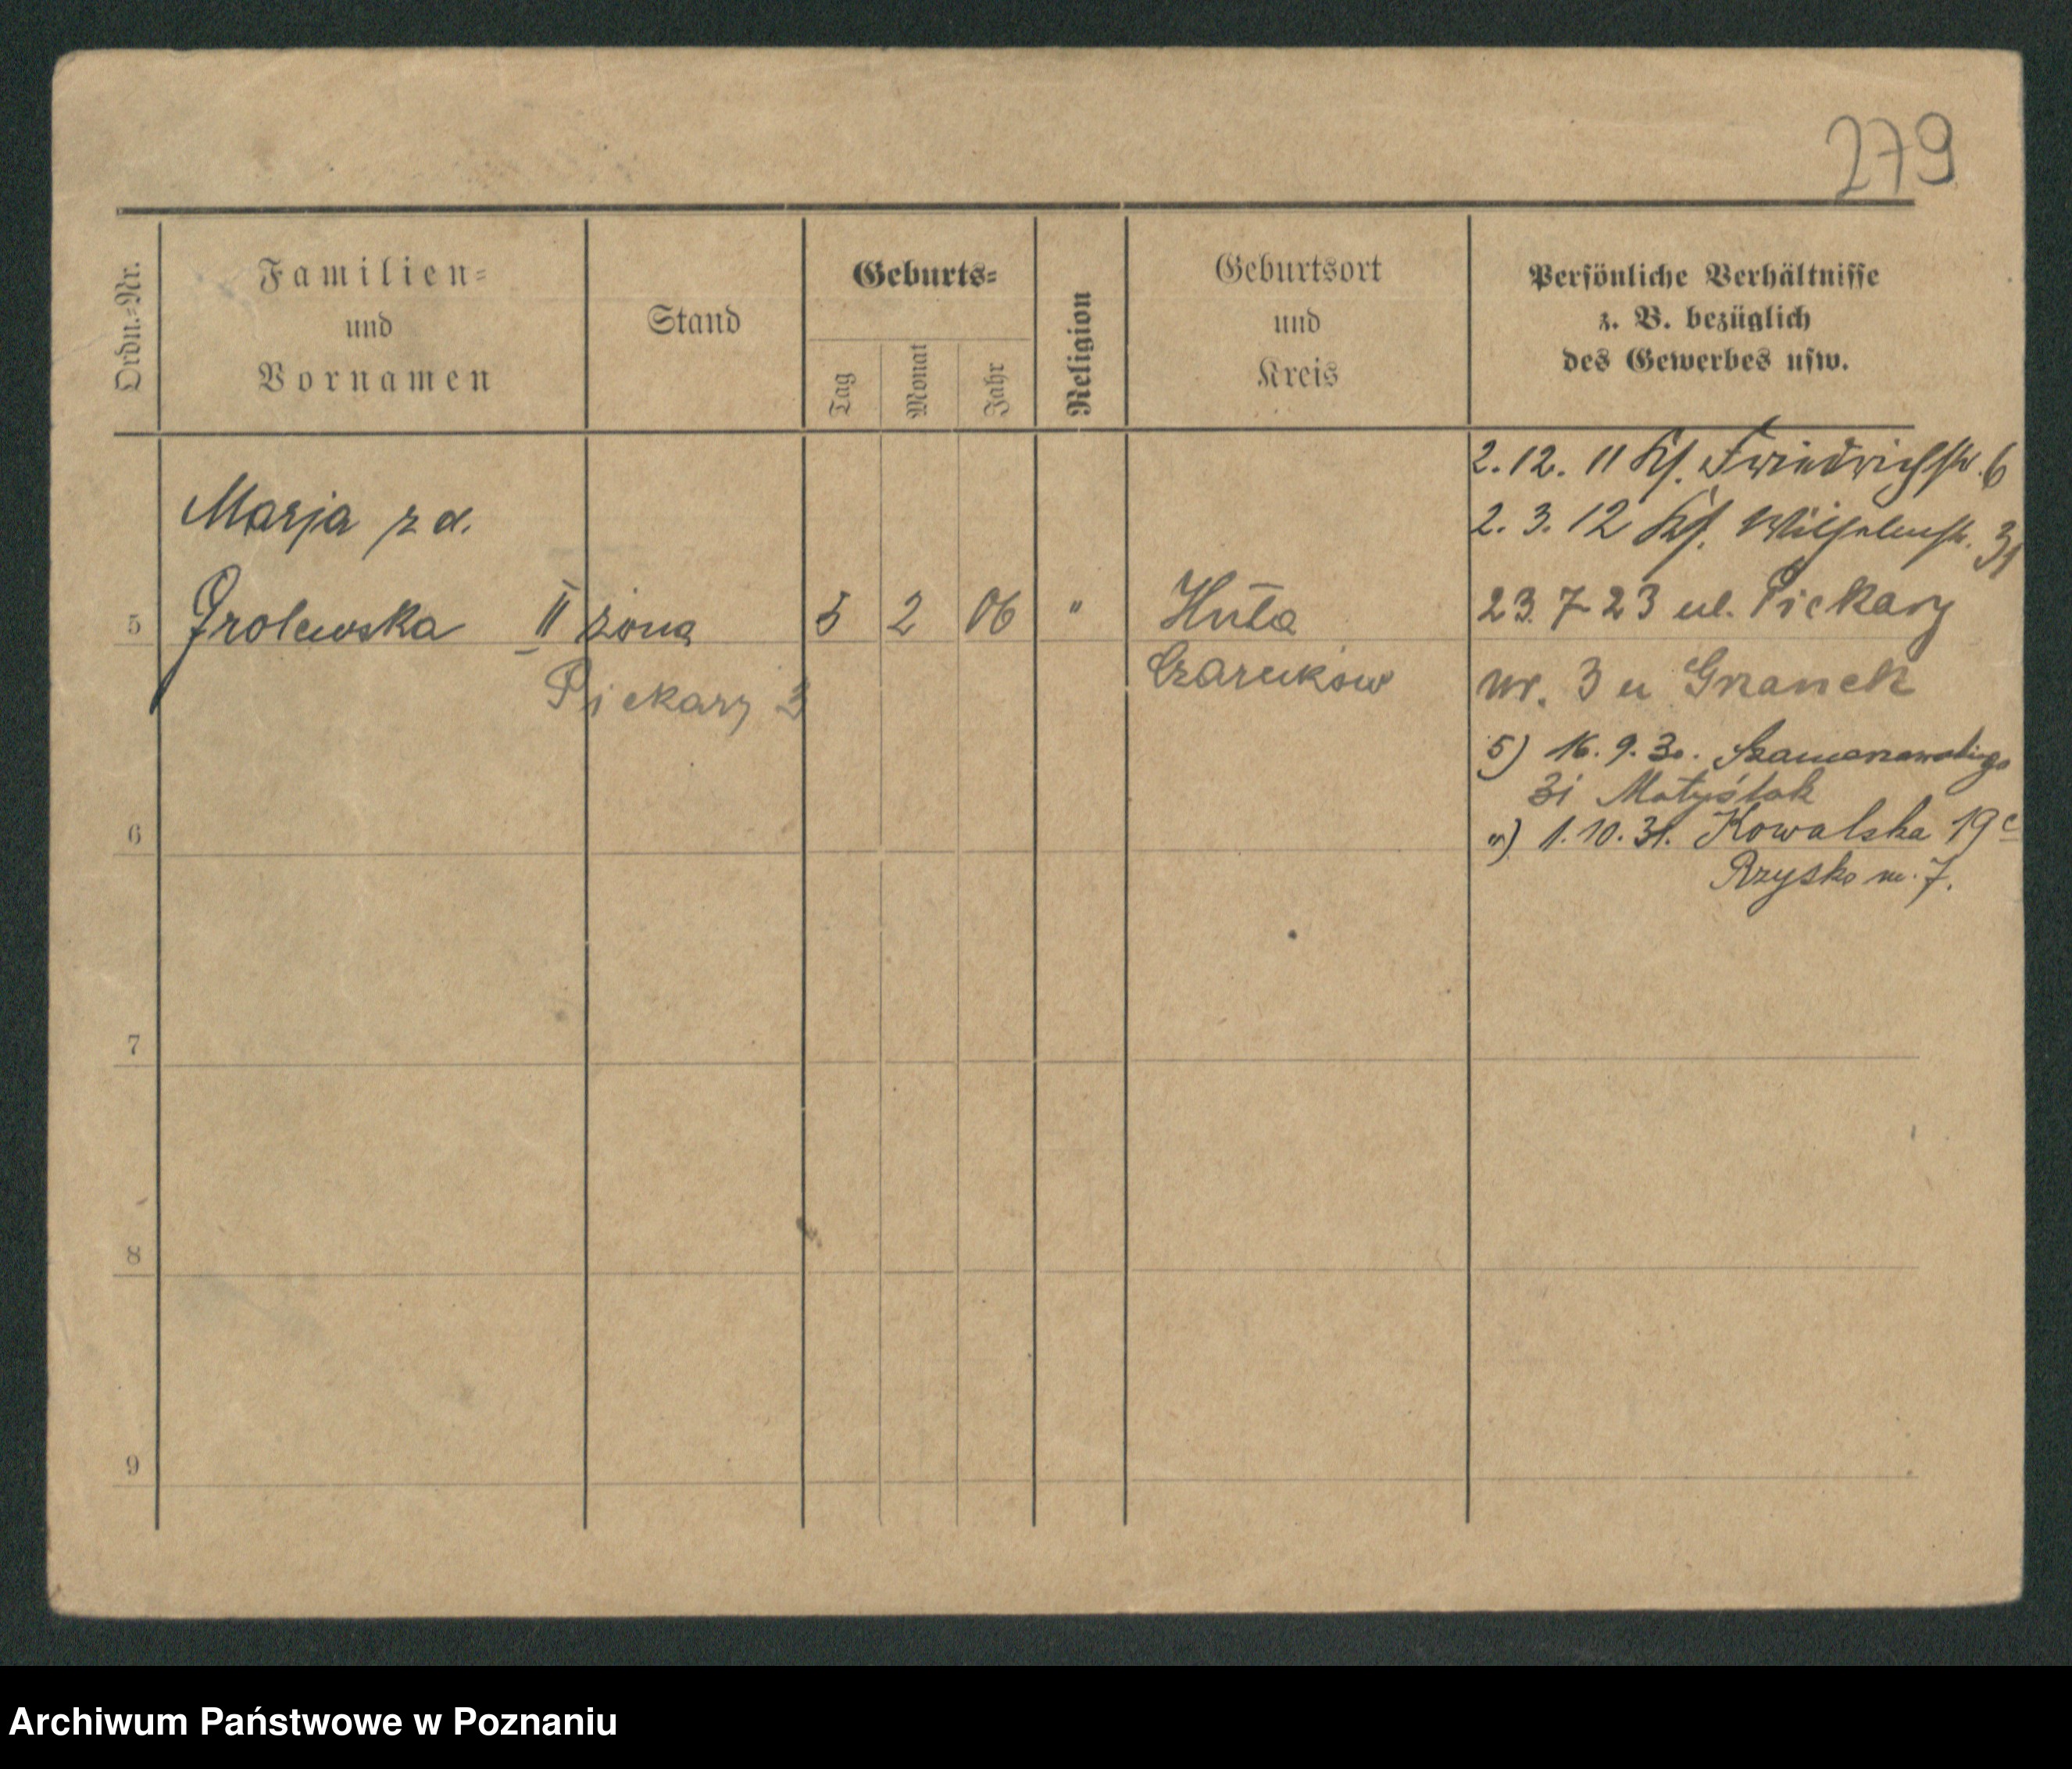 279
Ordn.-Nr.
Familien-
und
Vornamen
Stand
Geburts-
Tag
Monat
Jahr
Religion
Geburtsort
und
Kreis
Persönliche Verhältnisse
z. B. bezüglich
des Gewerbes usw.
2. 12. 11 Friedrichstr. 6
2. 3. 12 Wilhelmstr.
Marja z d.
5 Grolewska II żona 5 2 06 " Huta 23. 7 23 ul. Piekary
Piekary 3 Czarnków nr. 3 u
5) 16. 9. 30.
31 Matyśiak
6
") 1. 10. 31. Kowalska 19c
Rzysko m. 7.
7
8
9
Archiwum Państwowe w Poznaniu